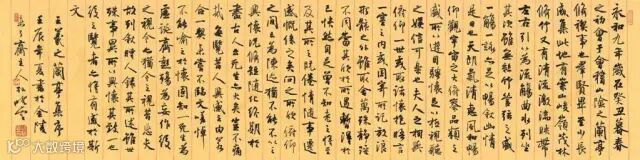 永和九年歲在癸丑暮春
之初會于會稽山陰之蘭亭
脩禊事也群賢畢至少長
咸集此地有崇山峻嶺茂林
脩竹又有清流激湍映帶
左右引以為流觴曲水列坐
其次雖無絲竹管弦之盛
一觴一詠亦足以暢敘幽情
是日也天朗氣清惠風和暢
仰觀宇宙之大俯察品類之
盛所以遊目騁懷足以極視聽
之娛信可樂也夫人之相與
俯仰一世或取諸懷抱晤言
一室之內或因寄所託放浪
形骸之外雖取舍萬殊靜躁
不同當其欣於所遇暫得於
己快然自足曾不知老之將至
及其所之既倦情隨事遷
感慨係之矣向之所欣俛仰
之間已為陳跡猶不能不以
之興懷況脩短隨化終期於
盡古人云死生亦大矣豈不痛
哉每覽昔人興感之由若
合一契未嘗不臨文嗟悼
不能喻之於懷固知一死生為
虛誕齊彭殤為妄作後
之視今亦猶今之視昔悲夫
故列敘時人錄其所述雖世
殊事異所以興懷其致一也
後之覽者亦將有感於斯
文
王羲之蘭亭集序
壬辰年夏書於金陵
大数跨境